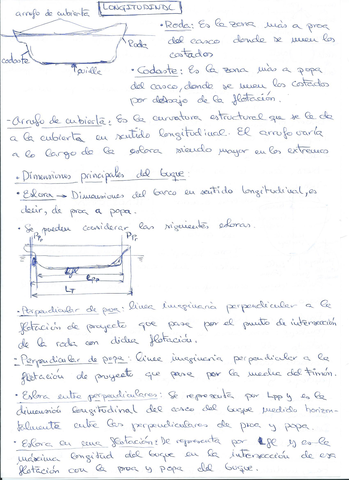 arrufo de cubierta LONGITUDINAL
· Roda: Es la zona más a proa
del casco donde se unen los
costados
Roda
codaste
quilla
· Codaste: Es la zona más a popa
del casco, donde se unen los costados
por debajo de la flotación.
- Arrufo de cubierta: Es la curvatura estructural que se le da
a la cubierta en sentido longitudinal. El arrufo varía
a lo largo de la eslora siendo mayor en los extremos
· Dimensiones principales del buque
· Eslora → Dimensiones del barco en sentido longitudinal, es
decir, de proa a popa.
· Se pueden considerar las siguientes esloras.
Ppp Ppr
Lfl
Lpp
LT
· Perpendicular de proa: línea imaginaria perpendicular a la
flotación de proyecto que pasa por el punto de intersección
de la roda con dicha flotación.
· Perpendicular de popa: línea imaginaria perpendicular a la
flotación de proyecto que pasa por la mecha del timón.
· Eslora entre perpendiculares: Se representa por Lpp y es la
dimensión longitudinal del casco del buque medido horizon-
talmente entre las perpendiculares de proa y popa.
· Eslora en una flotación: Se representa por Lfl y es la
máxima longitud del buque en la intersección de esa
flotación con la proa y popa del buque.